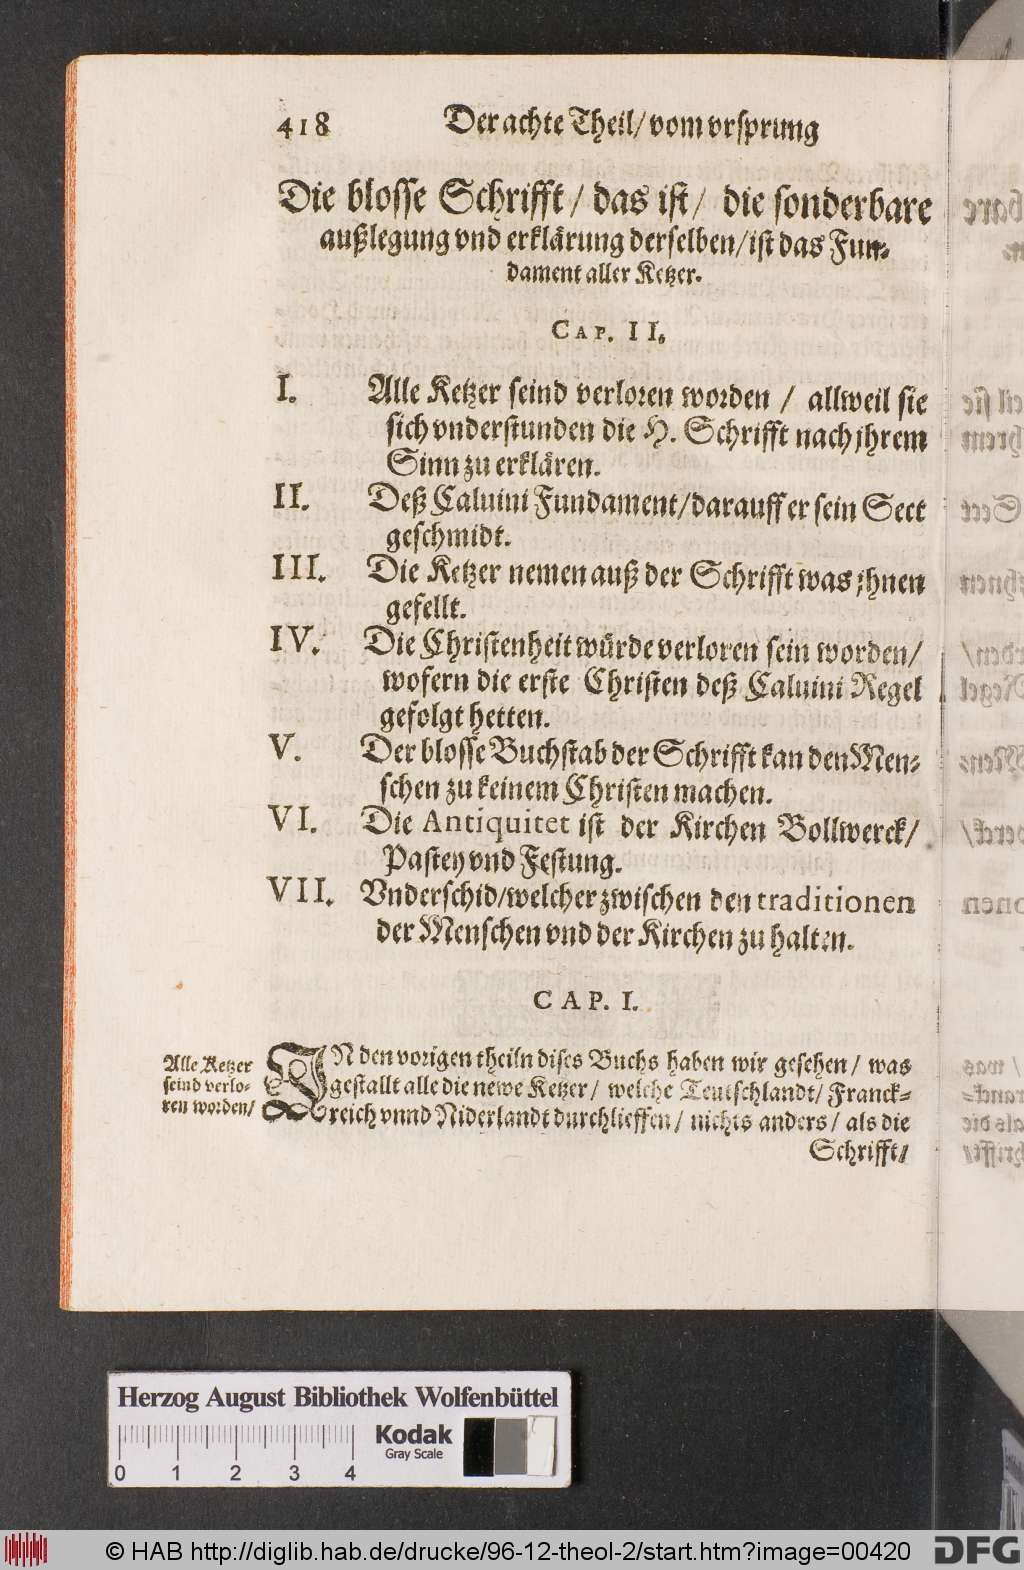 418 Der achte Theil/ vom vrsprung
Die blosse Schrifft/ das ist/ die sonderbare
außlegung vnd erklärung derselben/ ist das Fun-
dament aller Ketzer.
CAP. II.
I. Alle Ketzer seind verloren worden / allweil sie
sich vnderstunden die H. Schrifft nach jhrem
Sinn zu erklären.
II. Deß Caluini Fundament/ darauff er sein Sect
geschmidt.
III. Die Ketzer nemen auß der Schrifft was jhnen
gefellt.
IV. Die Christenheit würde verloren sein worden/
wofern die erste Christen deß Caluini Regel
gefolgt hetten.
V. Der blosse Buchstab der Schrifft kan den Men-
schen zu keinem Christen machen.
VI. Die Antiquitet ist der Kirchen Bollwerck/
Pastey vnd Festung.
VII. Vnderschid/ welcher zwischen den traditionen
der Menschen vnd der Kirchen zu halten.
CAP. I.
Alle Ketzer
seind verlo-
ren worden/
IN den vorigen theiln dises Buchs haben wir gesehen / was
gestallt alle die newe Ketzer/ welche Teutschlandt/ Franck-
reich vnnd Niderlandt durchlieffen / nichts anders / als die
Schrifft/
Herzog August Bibliothek Wolfenbüttel
Kodak
Gray Scale
0 1 2 3 4
© HAB http://diglib.hab.de/drucke/96-12-theol-2/start.htm?image=00420
DFG